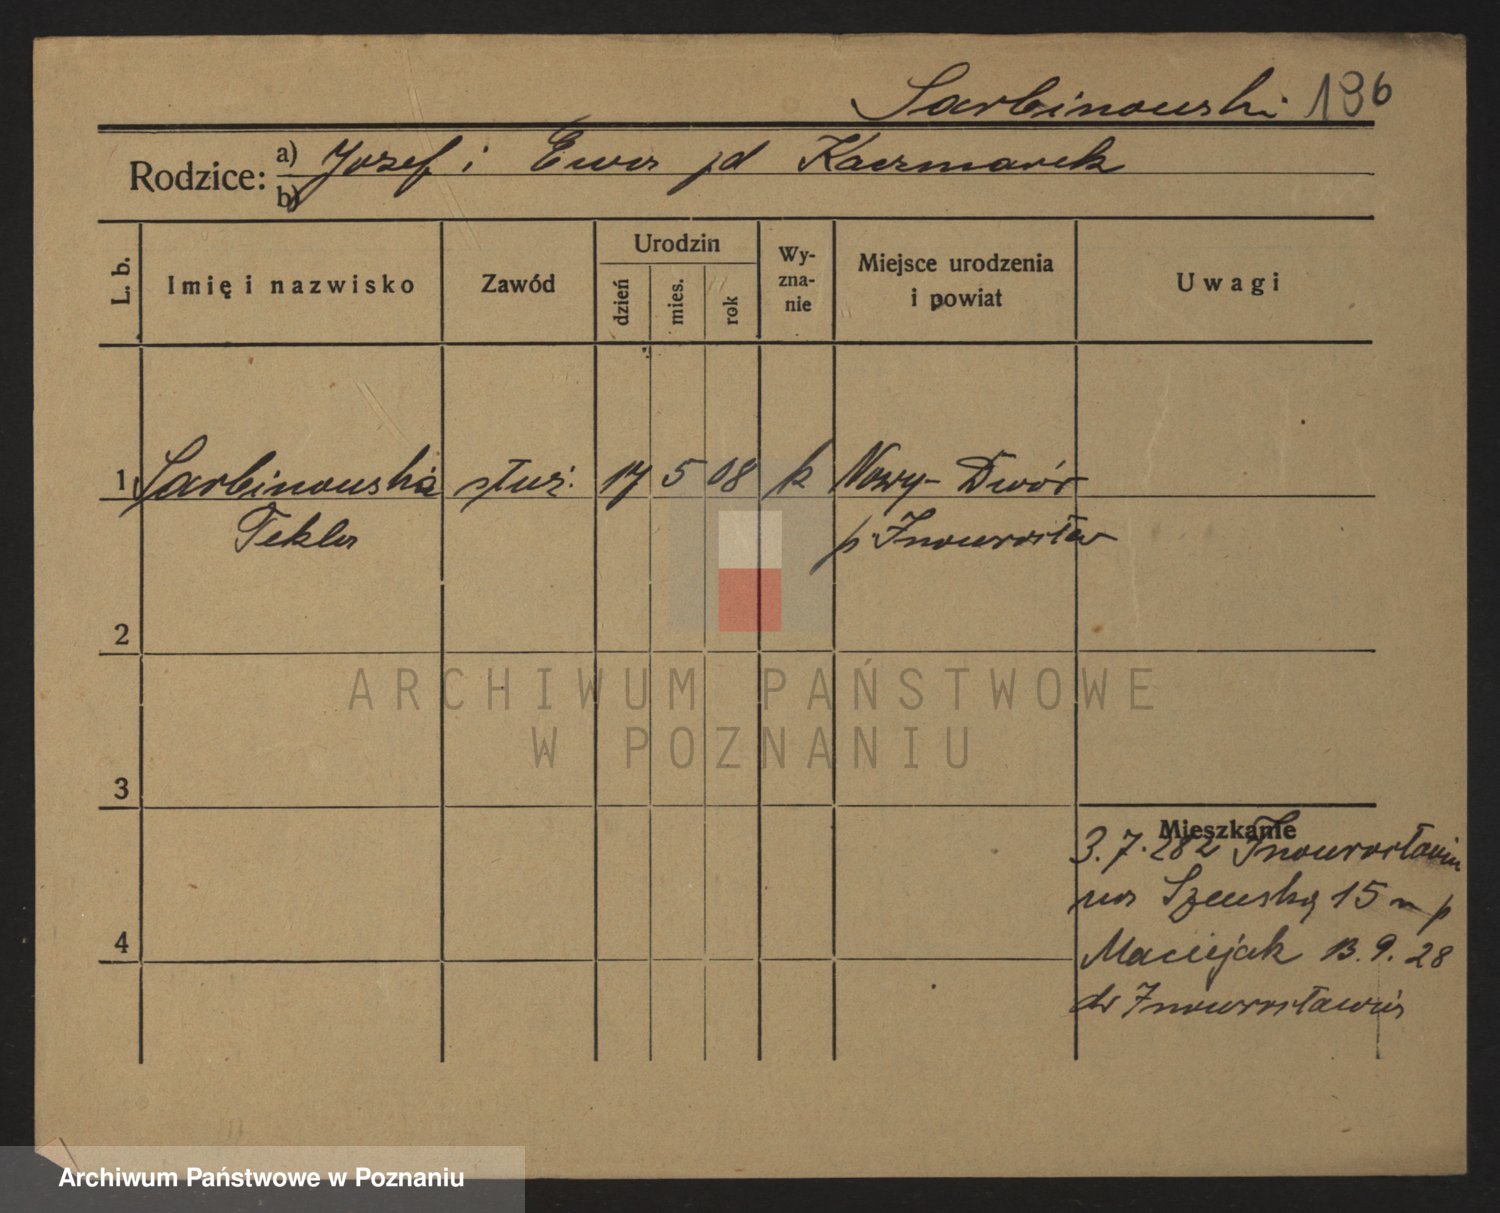 Sarbinowski 136
Rodzice: a) Jozef i Ewa zd Kaczmarek
b)
L. b.
Imię i nazwisko
Zawód
Urodzin
dzień
mies.
rok
Wy-
zna-
nie
Miejsce urodzenia
i powiat
Uwagi
1 Sarbinowska służ. 17 5 08 k Nowy-Dwór
Tekla p. Inowrocław
2
ARCHIWUM PAŃSTWOWE
W POZNANIU
3
Mieszkanie
3.7.28 z Inowrocławia
na 15 m p
4 Maciejak 13.9.28
do Inowrocławia
Archiwum Państwowe w Poznaniu